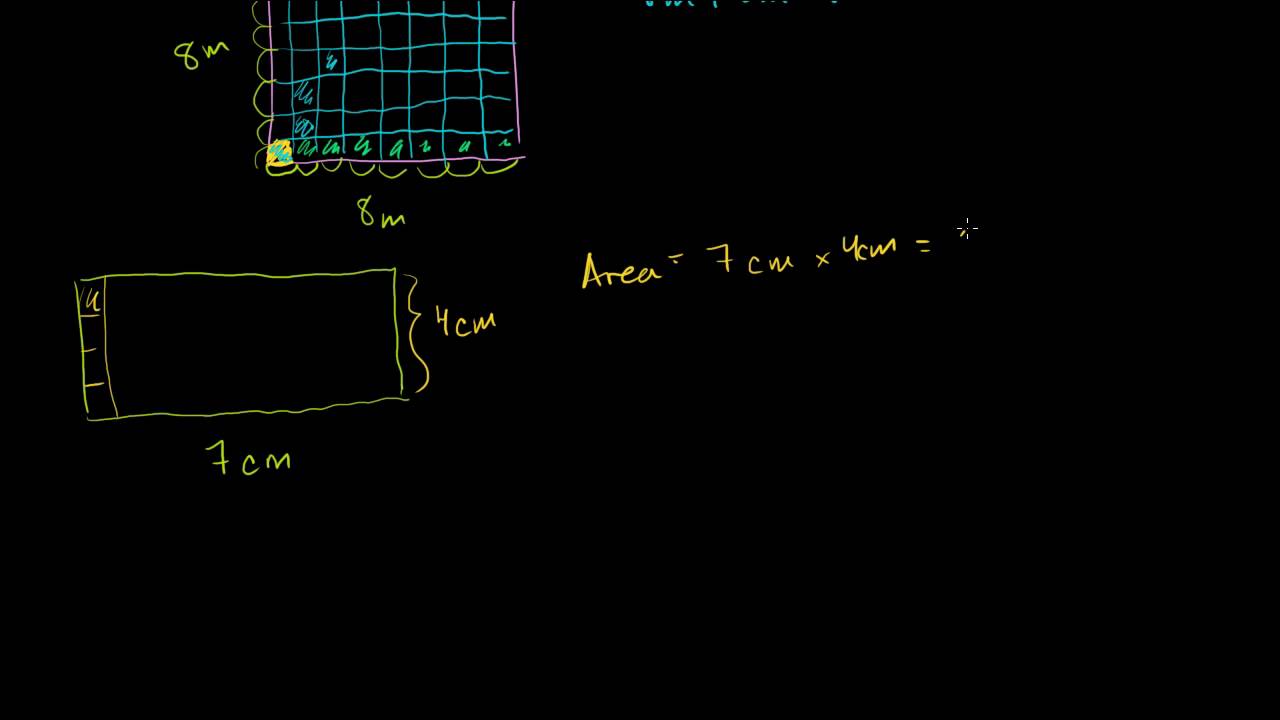 8m
8m
Area = 7cm × 4cm =
4cm
7cm